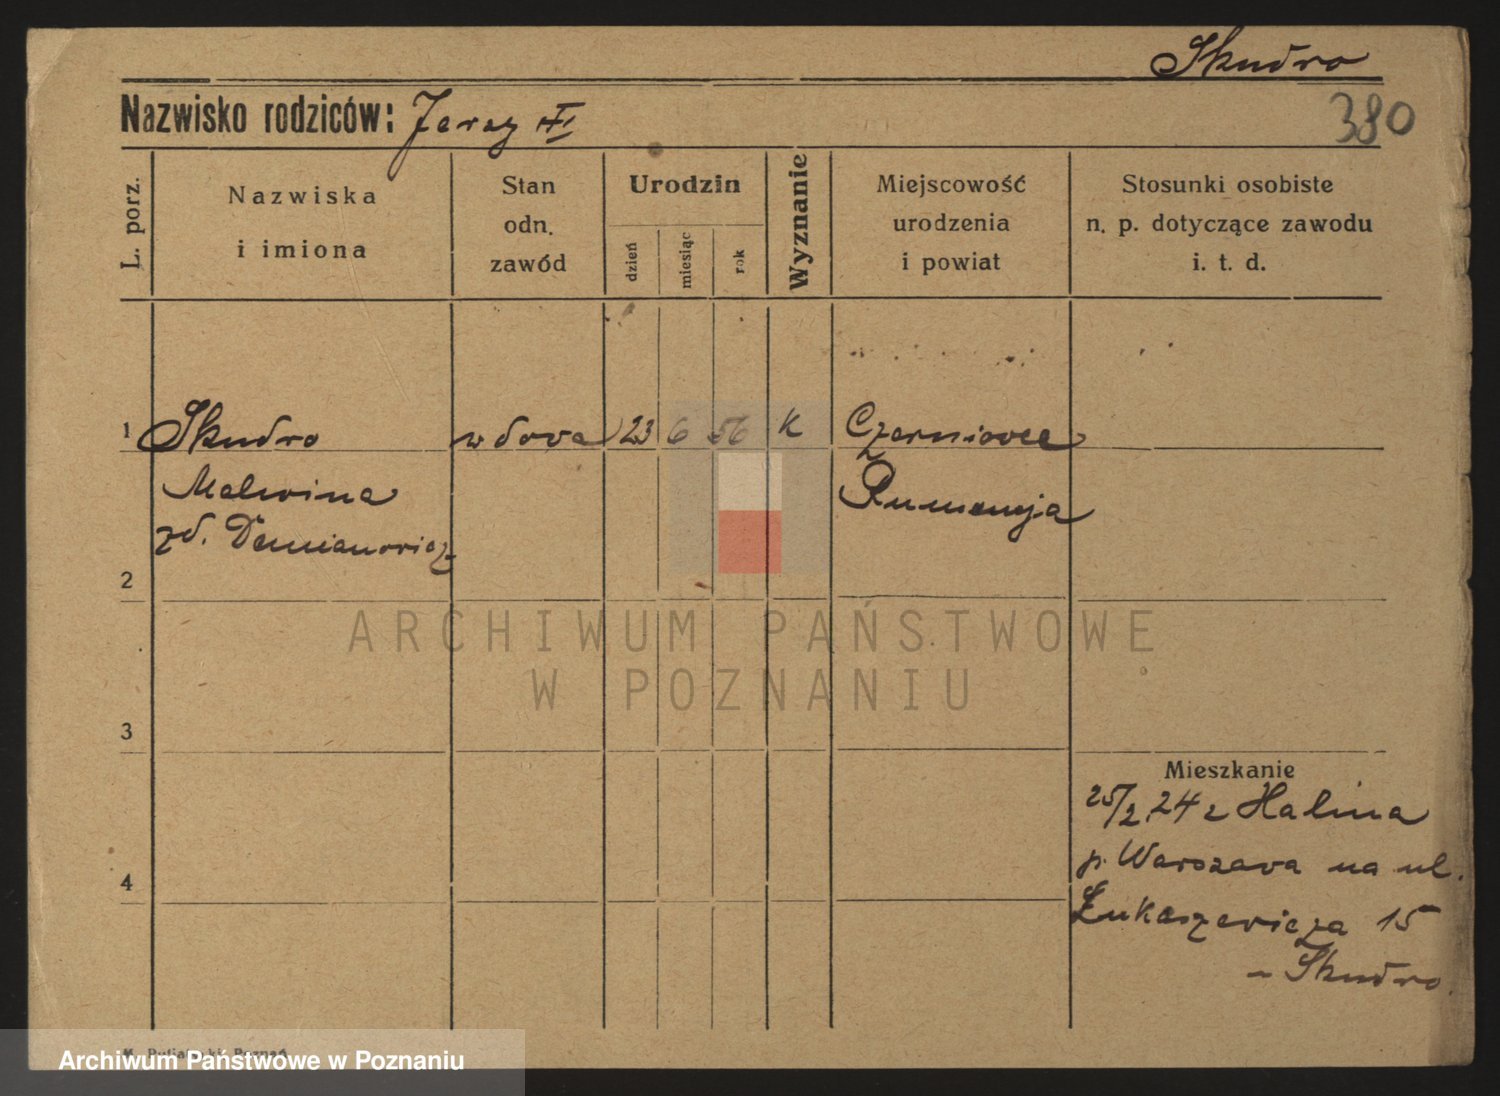 Skudro
Nazwisko rodziców: Jerzy
380
L. porz.
Nazwiska
i imiona
Stan
odn.
zawód
Urodzin
dzień
miesiąc
rok
Wyznanie
Miejscowość
urodzenia
i powiat
Stosunki osobiste
n. p. dotyczące zawodu
i. t. d.
1 Skudro wdova 23 6 56 K Czerniovce
Malwina Rumunja
zd. Demianowicz
2
ARCHIWUM PAŃSTWOWE
W POZNANIU
3
Mieszkanie
25/2 24 z Halina
p. Warszava na ul.
4
Łukaszevicza 15
– Skudro.
Archiwum Państwowe w Poznaniu